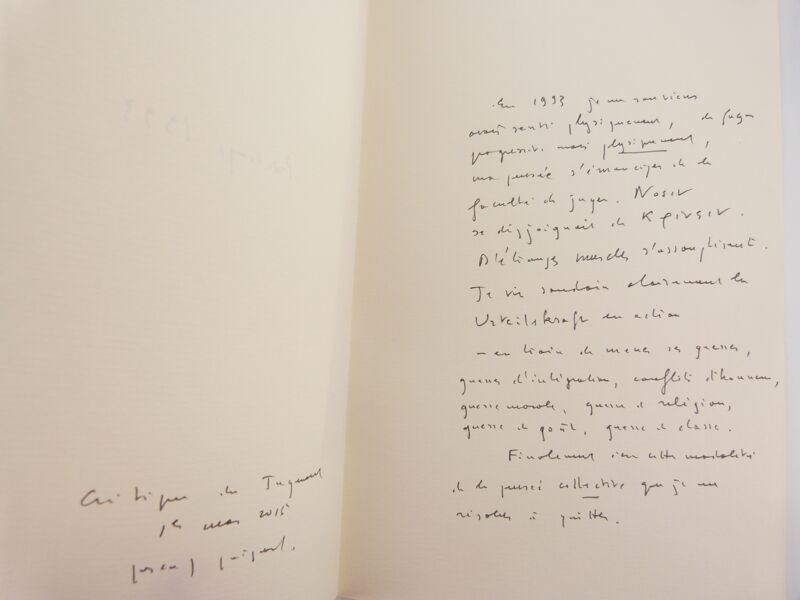 Critique du Jugement
1er mars 2015
pascal quignard.
En 1993 je me souviens
avoir senti physiquement, de façon
progressive mais physiquement,
ma pensée s'émanciper de la
faculté de juger. Noein
se disjoignait de Krinein.
D'étranges muscles s'assouplissent.
Je vis soudain clairement la
Urteilskraft en action
– en train de mener ses guerres,
guerres d'intégration, conflits d'honneur,
guerre morale, guerre de religion,
guerre de goût, guerre de classe.
Finalement c'est cette modalité
de la pensée collective que je me
résolus à quitter.